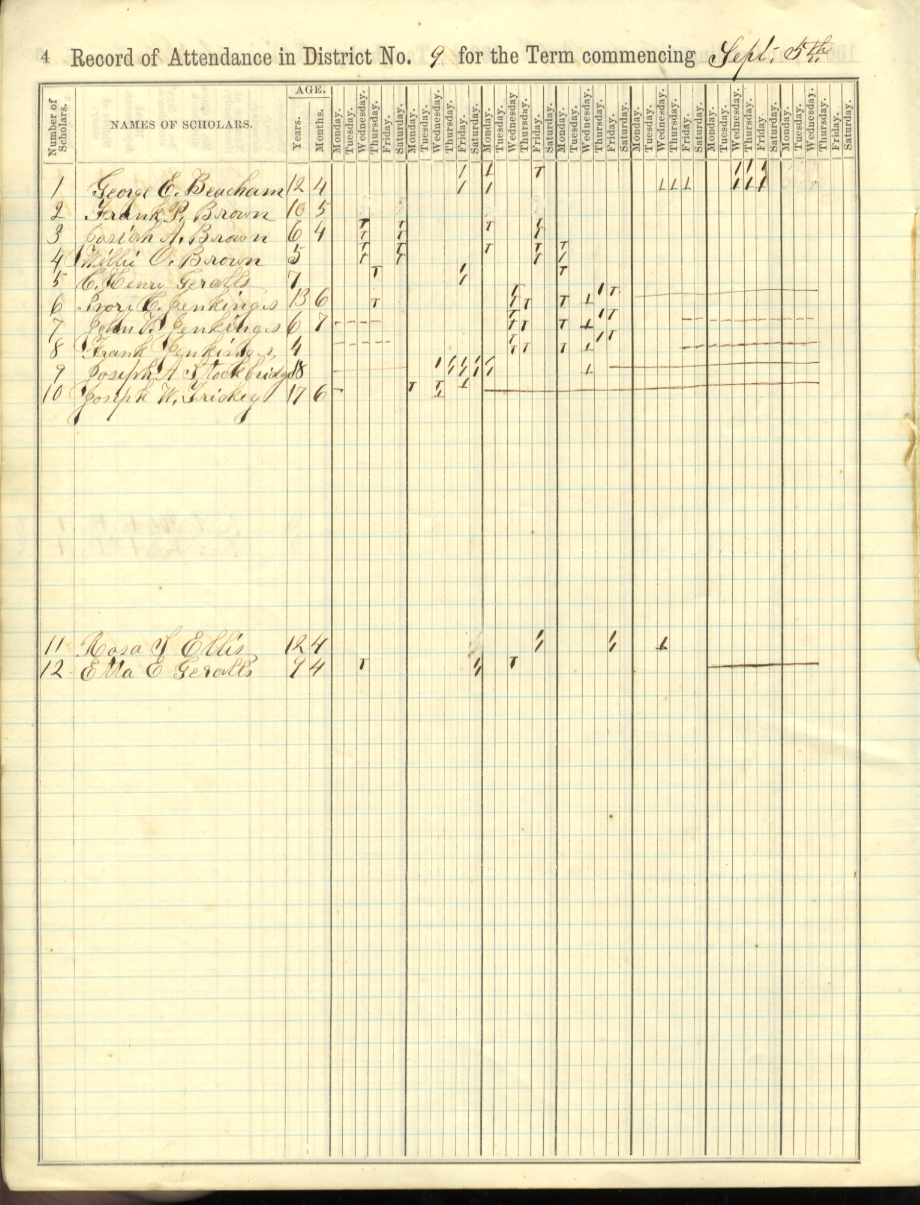 4 Record of Attendance in District No. 9 for the Term commencing Sept. 5th.
Number of Scholars. NAMES OF SCHOLARS. AGE. Years. Months. Monday. Tuesday. Wednesday. Thursday. Friday. Saturday. Monday. Tuesday. Wednesday. Thursday. Friday. Saturday. Monday. Tuesday. Wednesday Thursday. Friday. Saturday. Monday. Tuesday. Wednesday. Thursday. Friday. Saturday. Monday. Tuesday. Wednesday. Thursday. Friday. Saturday. Monday. Tuesday. Wednesday. Thursday. Friday Saturday. Monday. Tuesday. Wednesday. Thursday. Friday. Saturday.
1 George E. Beacham 12 4
2 Frank P. Brown 10 5
3 Josiah A. Brown 6 4
4 Willie O. Brown 5
5 C. Henri Geralls 7
6 Ivory C. Jenkings 13 6
7 John W. Jenkings 6 7
8 Frank Jenkings 4
9 Joseph A Stockbridge 18
10 Joseph W. Friskey 17 6
11 Rosa Y Ellis 12 4
12 Etta E Geralls 9 4